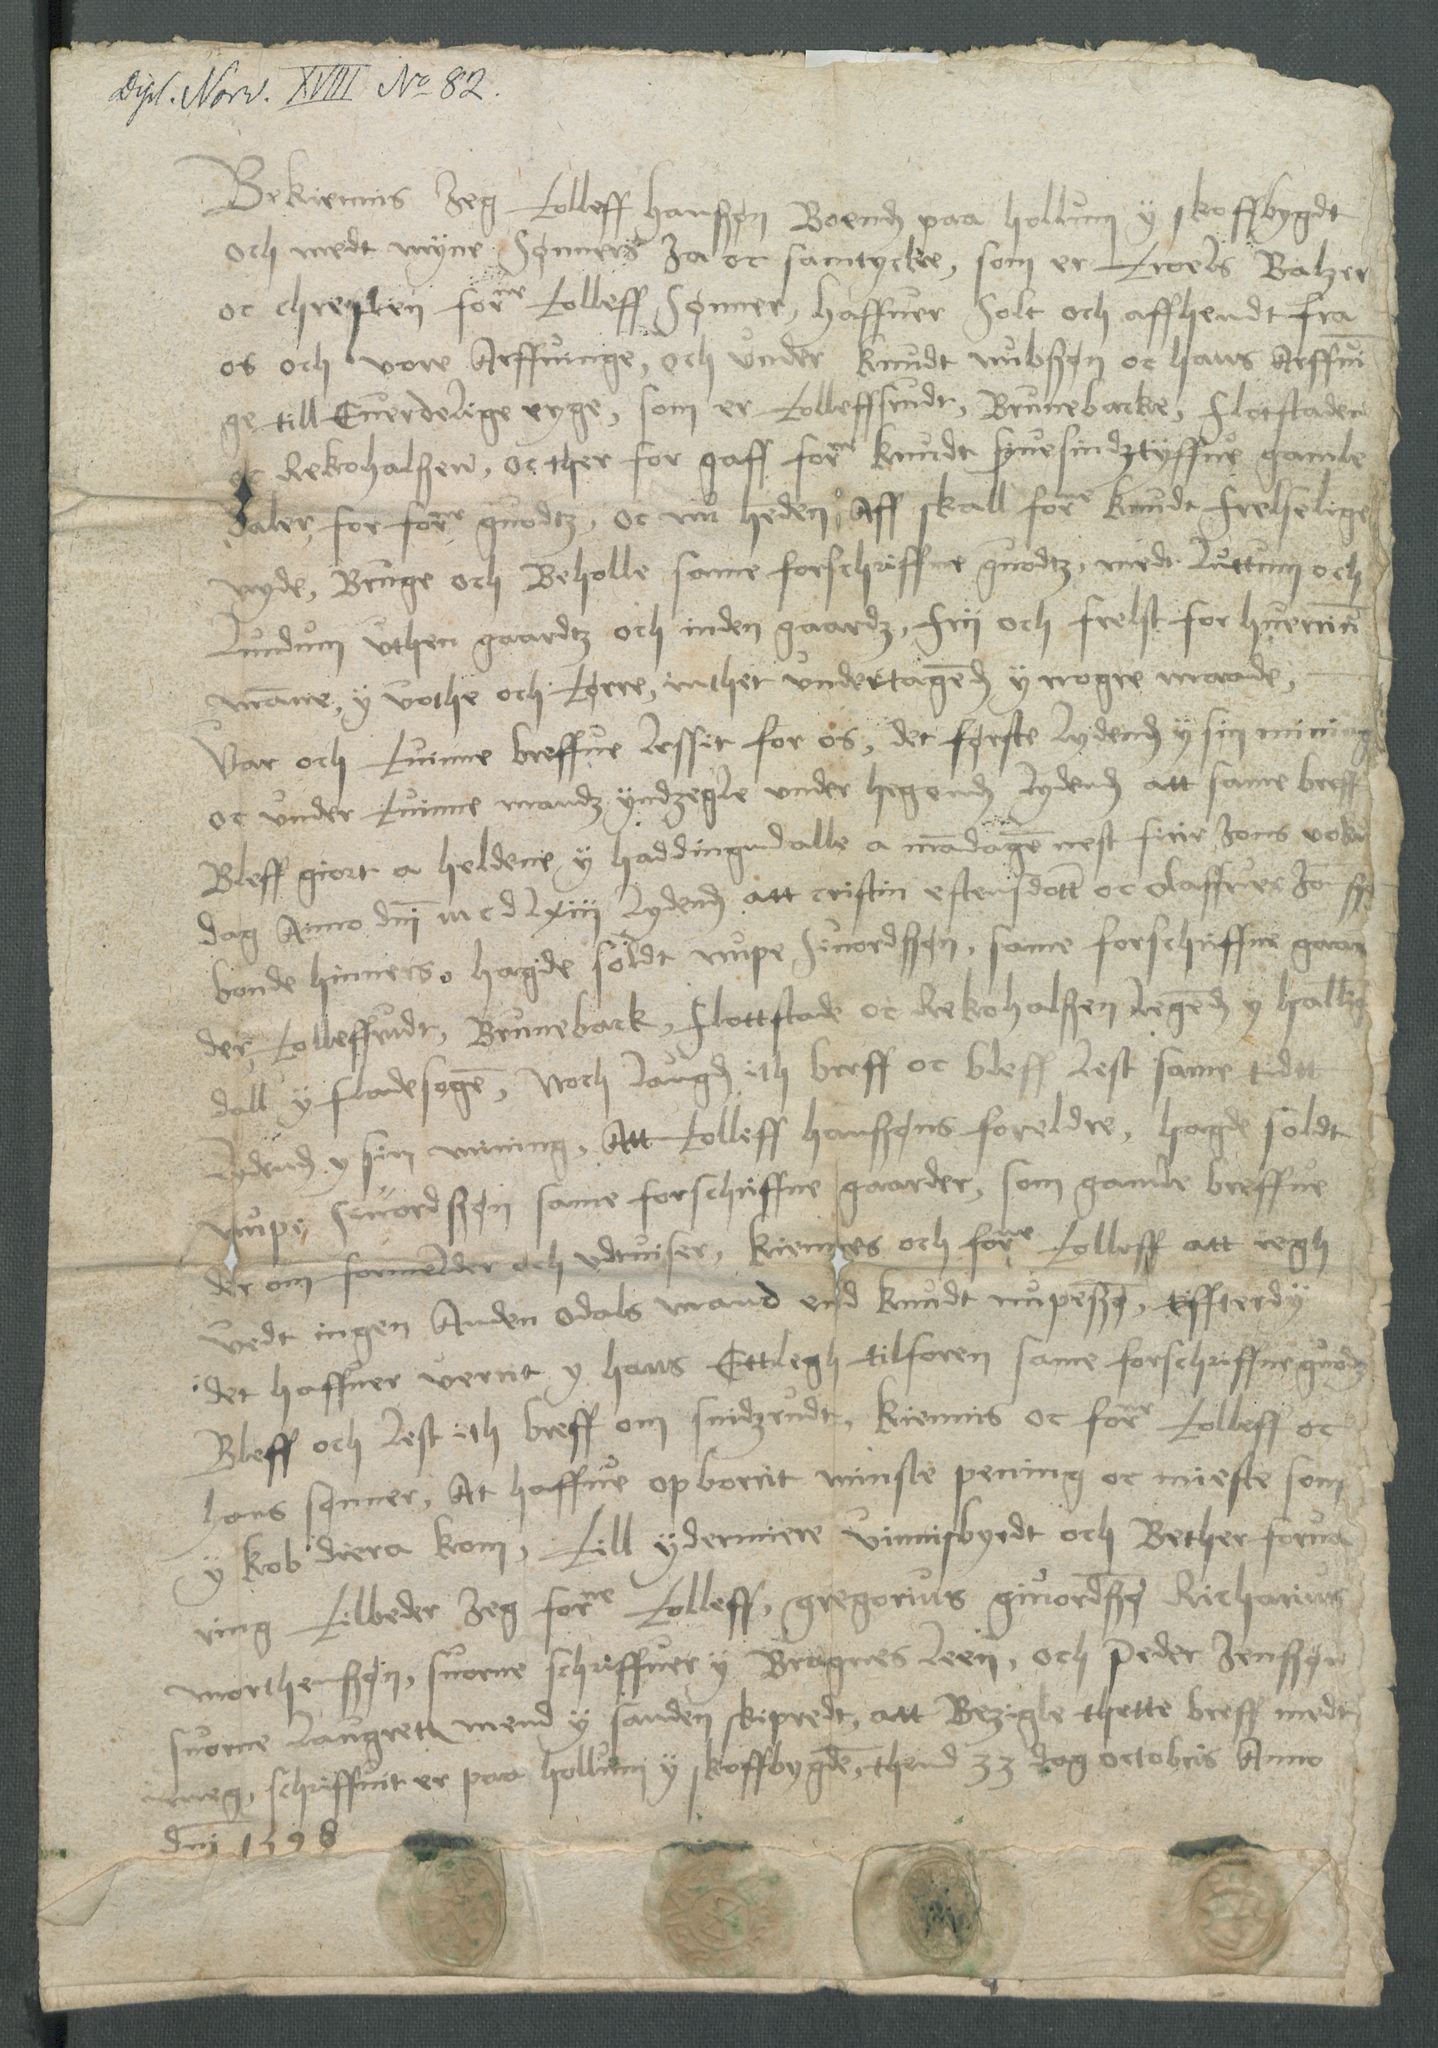 Dipl. Norv. XVIII No 82.
Bekiennis Jeg Tolleff hanßøn Boend paa hollum ÿ skoffbygdt
och medt myne Sønners Ja oc samtycke, som er Troels Balzer
oc chresten forne Tolleff Sønner, haffuer Solt och affhendt fra
os och vore Arffuinge, och vnder knudt nubßøn oc hans Arffui
ge till Euerdelige eyge, som er Tolleffsrudt, Brunebacke, Flotstaden
oc Rekohalßen, oc ther for gaff forne knudt siuesindztyffue gamle
daler, for forne guodtz, oc nu heden Aff skall forne knudt frelselige
nyde, Bruge och Beholle same forschriffne guodtz, medt Luttum och
Lundum vthen gaardtz och inden gaardz, frij och frelst for huermn
mane, ÿ vothe och tørre, inthet vndertagend ÿ nogre maade,
Var och tuinne breffue lessit for os, det første lydend ÿ sin mining
oc vnder tuinne mandz ÿndzegle vnder hegend lydend att same breff
Bleff giort a heldene ÿ haddingudalle a mandagen nest fiir Jons voku
dag Anno dni mcdlxiij lydend att cristin estensdott oc olaffuer Jonßø
bonde hinners, hagde soldt nupe siuordßøn, same forschriffne gaar
der, Tolleffrudt, Bruneback, flottstade oc Rekohalßen legend y halling
dall y fladesogen, Noch laugd ith breff oc bleff lest same tidtt
lydend y sin mining, Att Tolleff hanßøns foreldre, hagde soldt
nupe siuordßøn same forschriffne gaarder, som gamle breffue
der om formelder och vdtuiser, kiennes och forne Tolleff att iegh
vedt ingen Anden odals mand end knudt nupeßø, effterdÿ
det haffuer verrit y hans Ettlegh tilforen same forschriffne guodz
Bleff och lest ith breff om snidzrudt, kiennis oc forne Tolleff oc
hans sønner, At haffue opborrit minste pening oc mieste som
ÿ kob diera kom, Till ÿdermiere vinnisbyrdt och Bether forua
ring Tilbeder Jeg forne Tolleff, gregorius giuordßø Richarius
morthenßøn, suorne schriffuer ÿ Bragnes leen, och Peder Jenßøn
suorne laugrets mend ÿ sanden skipredt, att Bezigle thette breff medt
meg, schriffuit er paa hollum ÿ skoffbygden, thend 33 dag octobris Anno
dni 1598